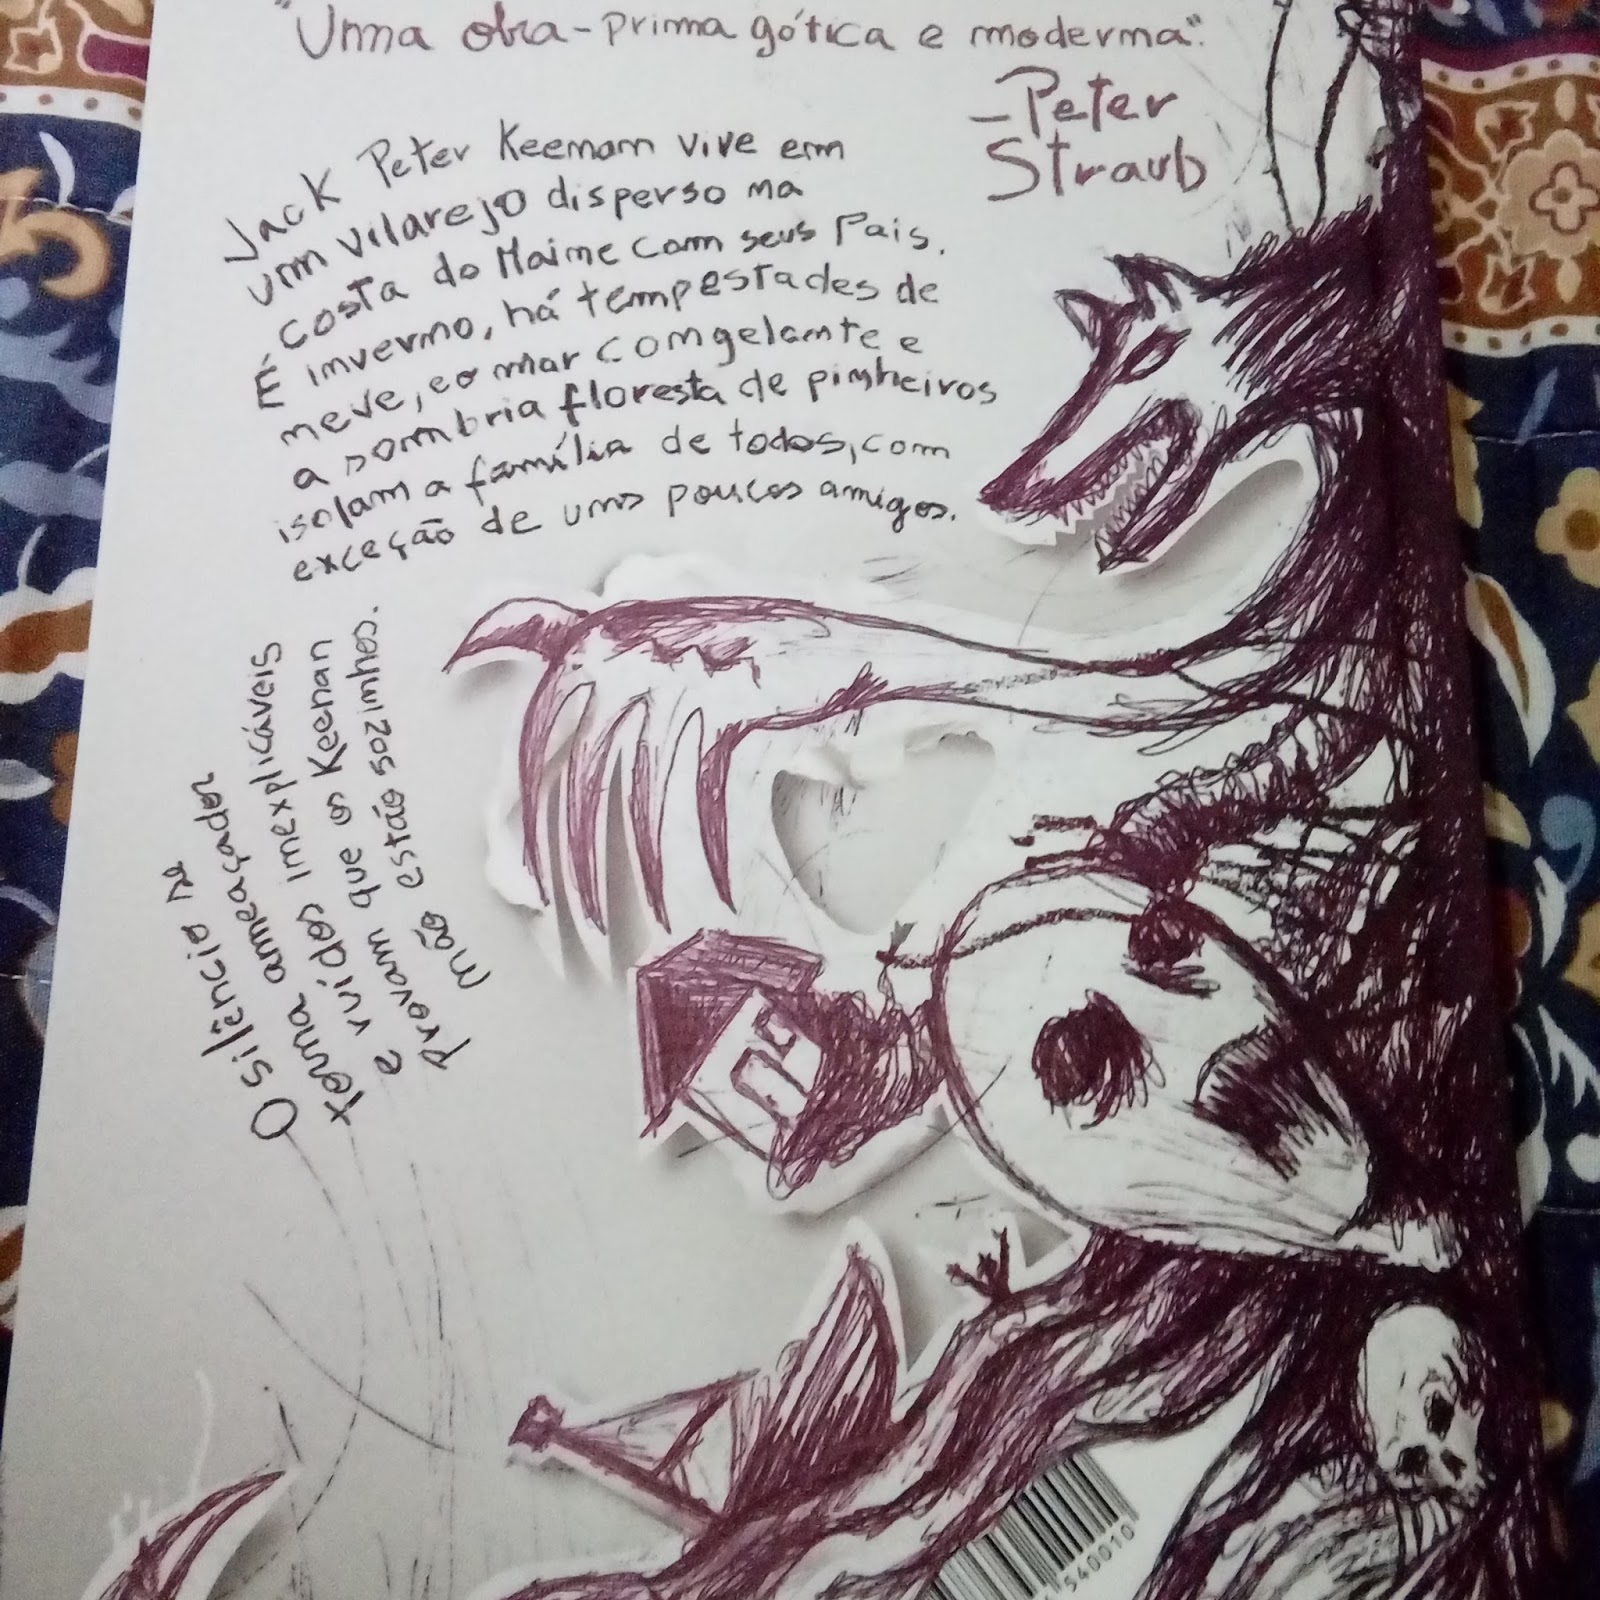 "Uma obra-prima gótica e moderna".
-Peter
Straub
Jack Peter Keenan vive em
um vilarejo disperso na
costa do Maine com seus Pais.
É inverno, há tempestades de
neve, e o mar congelante e
a sombria floresta de pinheiros
isolam a família de todos, com
exceção de uns poucos amigos.
O silêncio se
torna ameaçador
e ruídos inexplicáveis
provam que os Keenan
não estão sozinhos.
540010